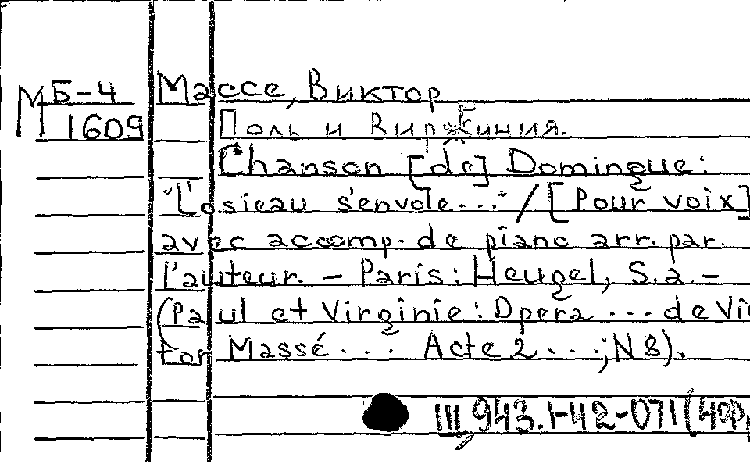 М Б-4 Массе, Виктор
1609 Поль и Виржиния.
Chanson [de] Domingue:
"L'osieau s'envole..." / [Pour voix]
avec accomp. de piano arr. par
l'auteur. - Paris: Heugel, S.a. -
(Paul et Virginie: Opera ... de Vic
tor Massé ... Acte 2 ...; N 8).
III, 943.1-42-071(Нор,